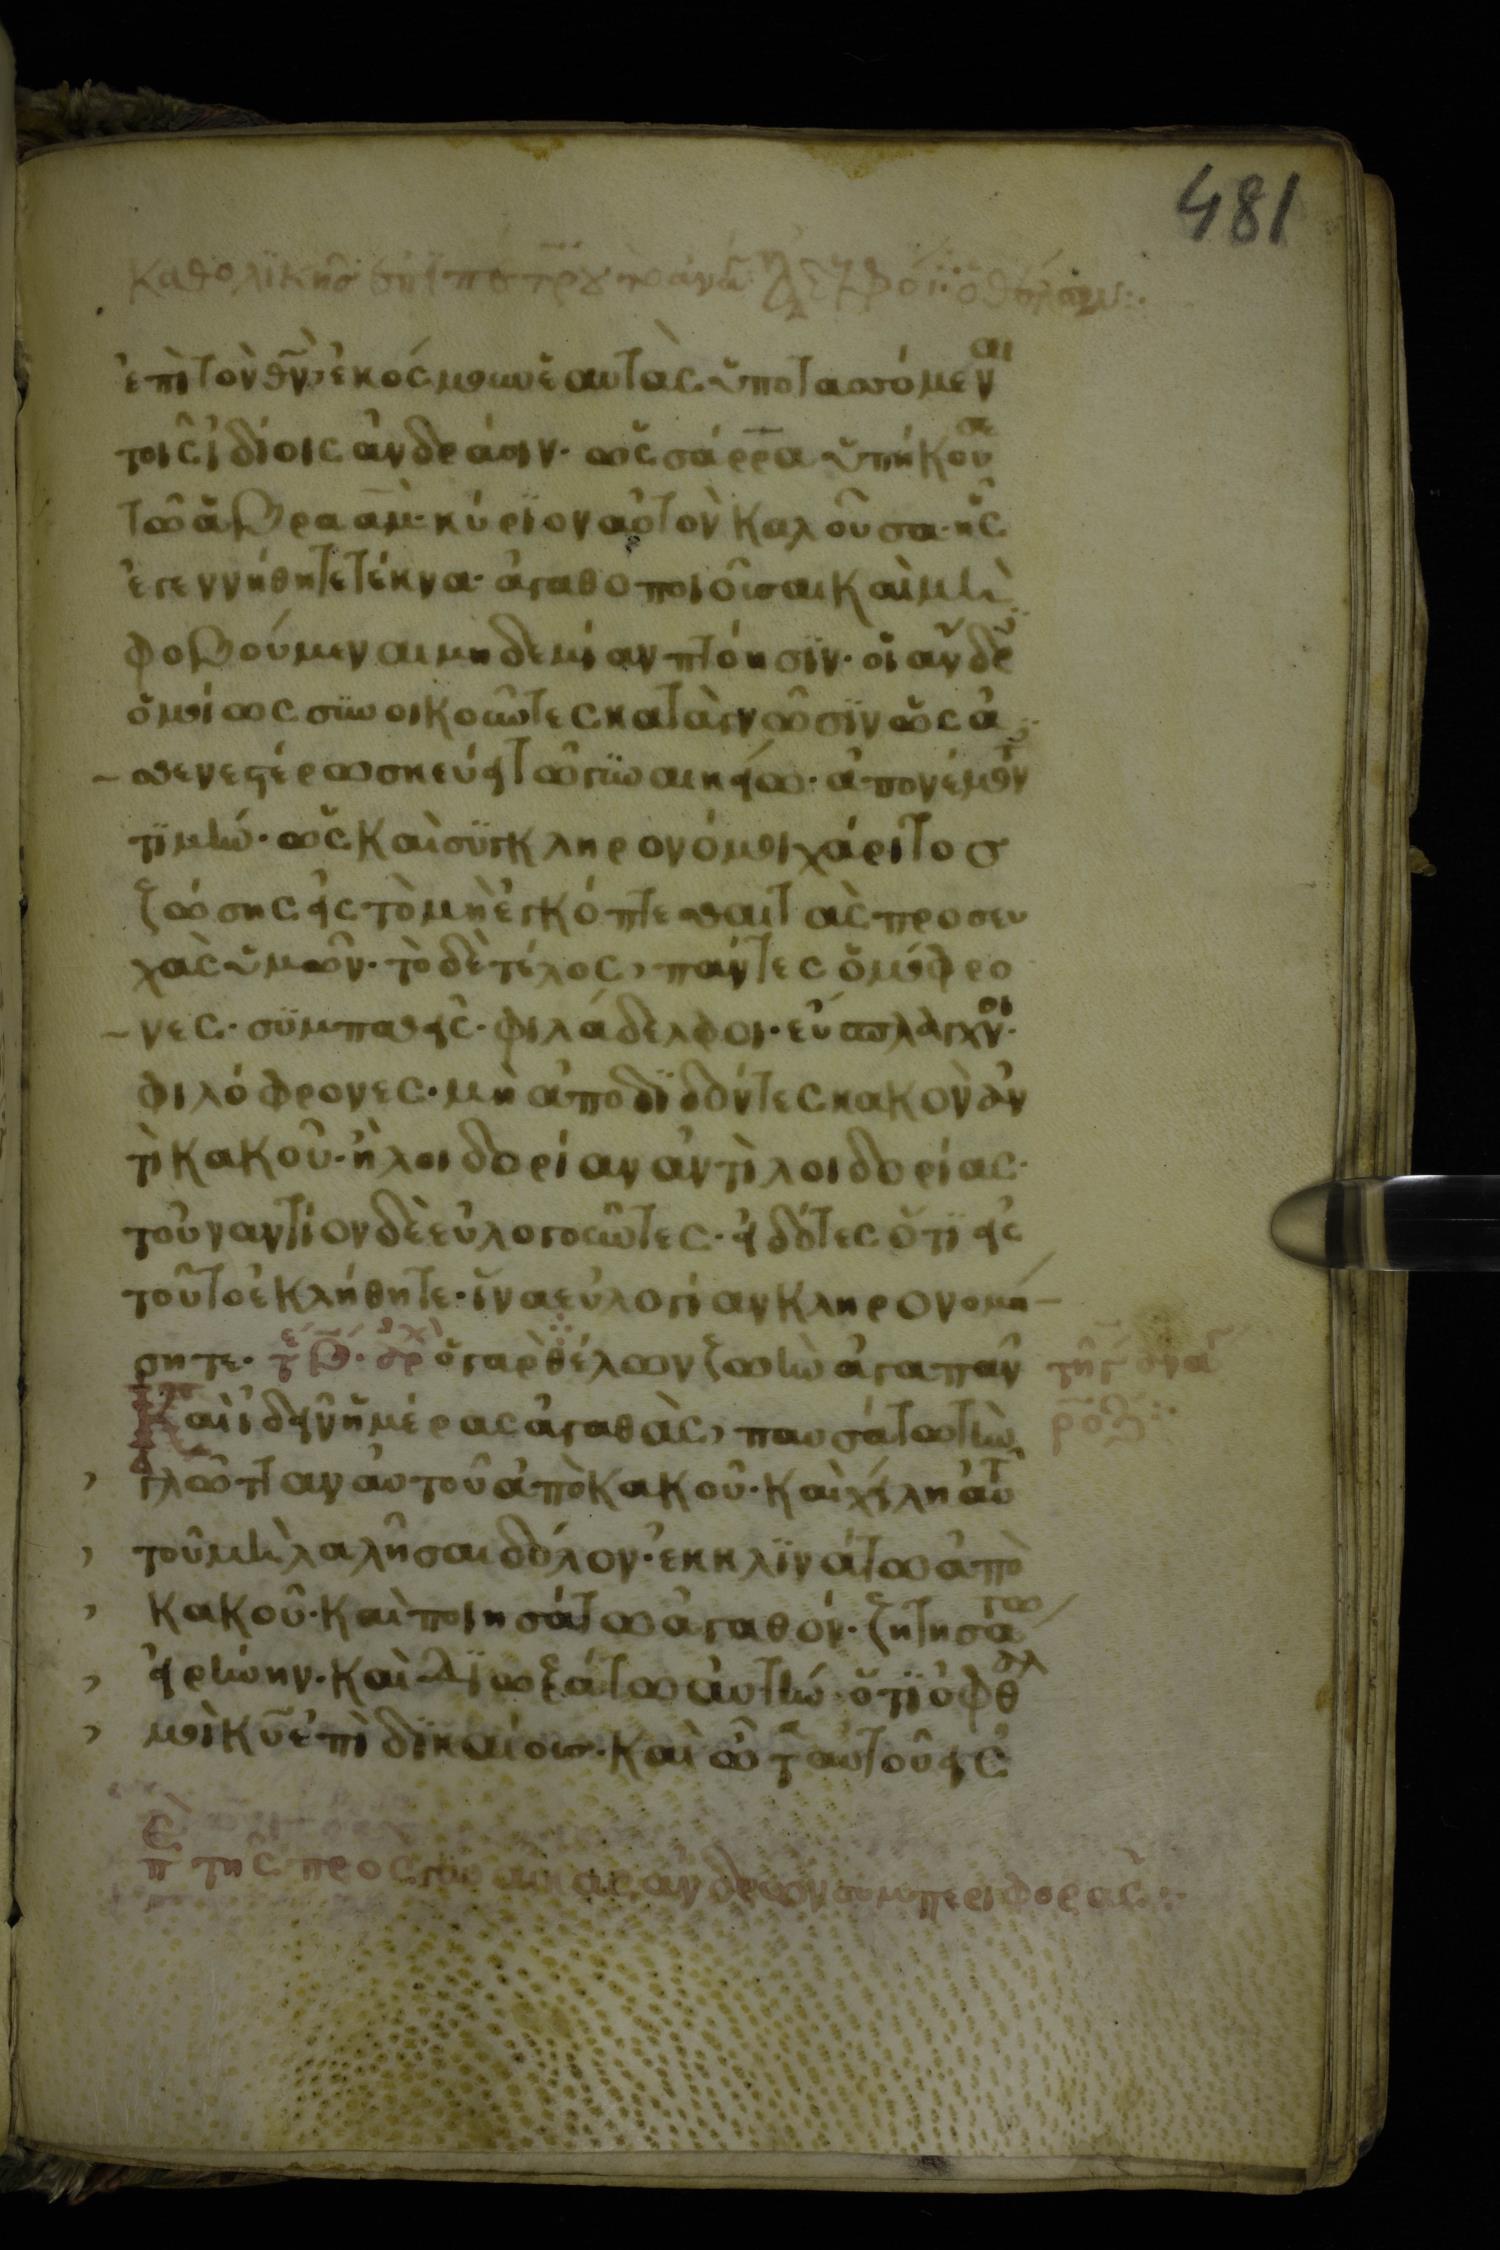 481
ἐπὶ τὸν θ̅ν̅, ἐκόσμουν ἑαυτὰς ὑποτασσόμεναι
τοῖς ἰδίοις ἀνδράσιν· ὡς σάρρα ὑπήκουσε
τῶ ἀβραὰμ· κύριον αὐτὸν καλοῦσα· ἧς
ἐγεννήθητε τέκνα· ἀγαθοποιοῦσαι καὶ μὴ
φοβούμεναι μηδεμίαν πτόησϊν· οἱ ἄνδρες
ὁμοίως συνοικοῦντες κατὰ γνῶσϊν ὡς ἀ
σθενεστέρω σκεύει τῶ γυναικείω· ἀπονέμοντες
τϊμήν· ὡς καὶ συγκληρονόμοι χάριτος
ζώσης εἰς τὸ μὴ ἐγκόπτεσθαι τὰς προσευ
χὰς ὑμῶν· τὸ δὲ τέλος, πάντες ὁμόφρο
νες· συμπαθεῖς· φιλάδελφοι· εὔσπλαγχνοι·
φιλόφρονες· μὴ ἀποδϊδόντες κακὸν ἀν
τὶ κακοῦ· ἢ λοιδορίαν ἀντὶ λοιδορίας·
τοὐναντίον δὲ εὐλογοῦντες· εἰδότες ὅτϊ εἰς
τοῦτο ἐκλήθητε· ἵνα εὐλογίαν κληρονομή
σητε· ὁ γὰρ θέλων ζωὴν ἀγαπᾶν
καὶ ἰδεῖν ἡμέρας ἀγαθὰς, παυσάτω τὴν
γλῶτταν αὐτοῦ ἀπὸ κακοῦ· καὶ χείλη αὐ
τοῦ μὴ λαλῆσαι δόλον· ἐκκλϊνάτω ἀπὸ
κακοῦ· καὶ ποιησάτω ἀγαθόν· ζητησάτω
εἰρήνην· καὶ δϊωξάτω αὐτήν· ὅτϊ ὀφθαλ
μοὶ κ̅υ̅ ἐπὶ δϊκαίους· καὶ ὦτα αὐτοῦ εἰς
τῆς πρὸς γυναῖκας ἀνδρῶν συμπεριφορᾶς